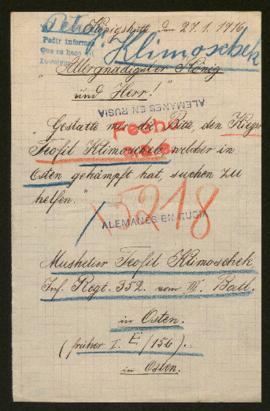 Königshütte den 27.1.1916
Pedir informes
Klimoschek
"Allergnädigster König
und Herr!"
ALEMANES EN RUSIA
"Gestatte mir die Bitte, den Krieger
Teofil Klimoschek, welcher in
Osten gekämpft hat, suchen zu
helfen."
5218
ALEMANES EN RUSIA
Musketier Teofil Klimoschek
Inf. Regt. 352. vom III. Batl.
in Osten.
(früher I. E/156).
in Osten.